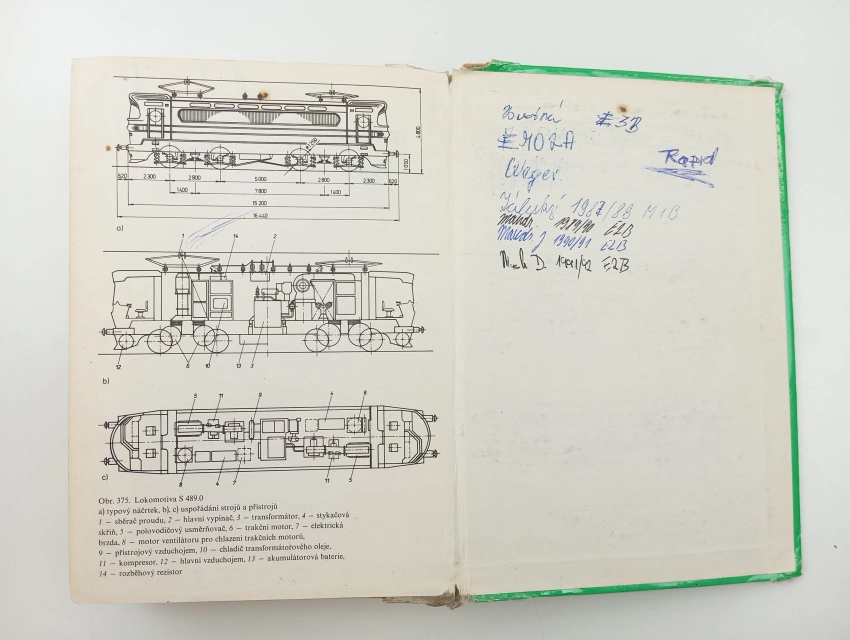 620
2 300
2 800
5 000
2 800
2 300
620
1400
7 800
1400
15 200
16 440
a)
1
14
2
12
6
10
13
3
b)
5
11
9
4
8
8
4
7
11
5
c)
Obr. 375. Lokomotiva S 489.0
a) typový náčrtek, b), c) uspořádání strojů a přístrojů
1 — sběrač proudu, 2 — hlavní vypínač, 3 — transformátor, 4 — stykačová
skříň, 5 — polovodičový usměrňovač, 6 — trakční motor, 7 — elektrická
brzda, 8 — motor ventilátoru pro chlazení trakčních motorů,
9 — přístrojový vzduchojem, 10 — chladič transformátorového oleje,
11 — kompresor, 12 — hlavní vzduchojem, 13 — akumulátorová baterie,
14 — rozběhový rezistor
E 3B
Rapid
1987/88
1989/90 E2B
1990/91 E2B
D. 1991/92 E2B